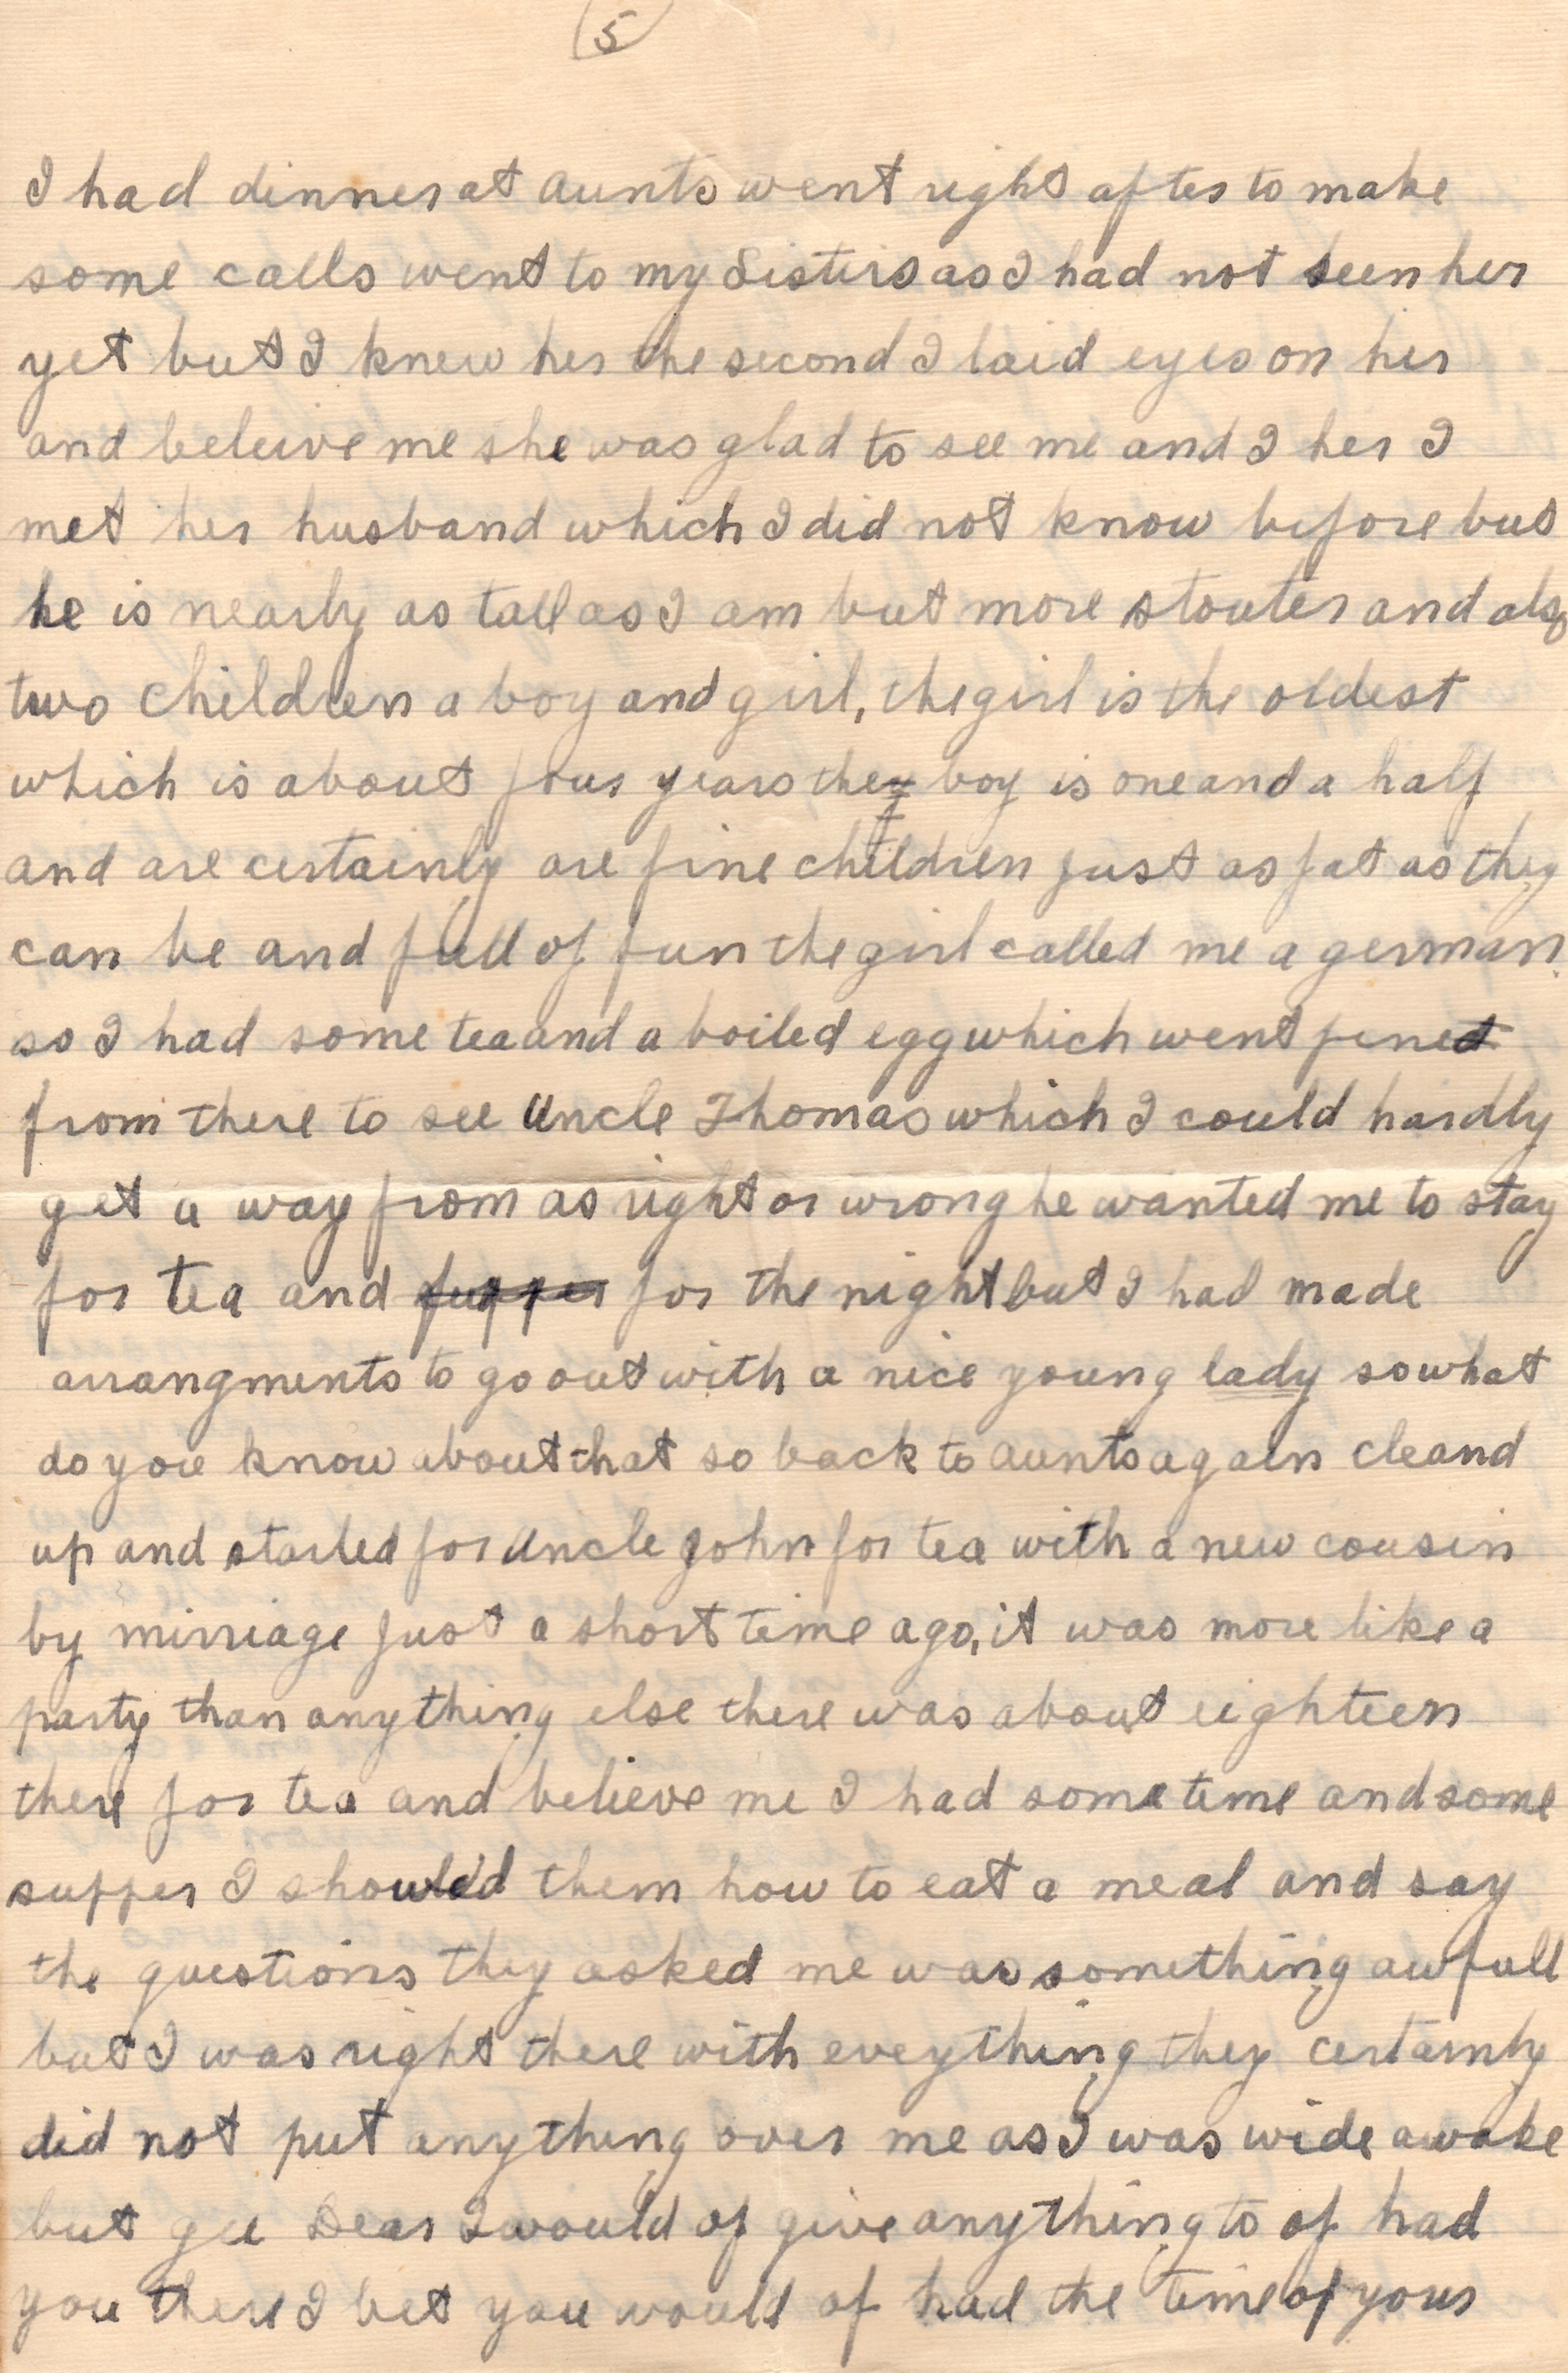 5
I had dinner at aunts went right after to make
some calls went to my Sisters as I had not seen her
yet but I knew her the second I laid eyes on her
and beleive me she was glad to see me and I her I
met her husband which I did not know before but
he is nearly as tall as I am but more stouter and also
two children a boy and girl, the girl is the oldest
which is about four years the boy is one and a half
and are certainly are fine children just as fat as they
can be and full of fun the girl called me a german.
so I had some tea and a boiled egg which went fine
from there to see Uncle Thomas which I could hardly
get a way from as right or wrong he wanted me to stay
for tea and supper for the night but I had made
arrangments to go out with a nice young lady so what
do you know about that so back to aunts again cleand
up and started for Uncle John for tea with a new cousin
by mirriage just a short time ago, it was more like a
party than anything else there was about eighteen
there for tea and believe me I had some time and some
supper I showed them how to eat a meal and say
the questions they asked me was something awfull
but I was right there with eveything they certainly
did not put anything over me as I was wide awake
but gee Dear I would of give anything to of had
you there I bet you would of had the time of your